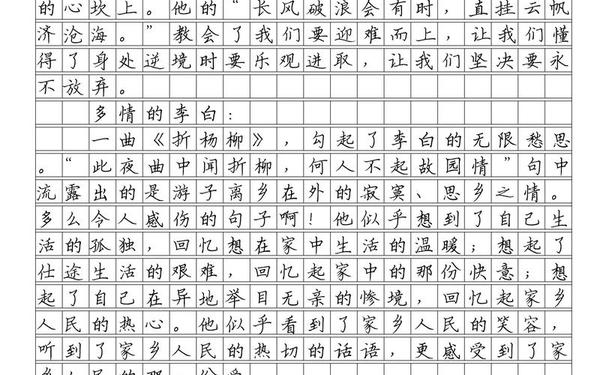 的心坎上。他的“长风破浪会有时，直挂云帆
济沧海。”教会了我们要迎难而上，让我们懂
得了身处逆境时要乐观进取，让我们坚决要永
不放弃。
多情的李白：
一曲《折杨柳》，勾起了李白的无限愁思
。“此夜曲中闻折柳，何人不起故园情”句中
流露出的是游子离乡在外的寂寞、思乡之情。
多么令人感伤的句子啊！他似乎想到了自己生
活的孤独，回忆想在家中生活的温暖；想起了
仕途生活的艰难，回忆起家中的那份快意；想
起了自己在异地举目无亲的惨境，回忆起家乡
人民的热心。他似乎看到了家乡人民的笑容，
听到了家乡人民的热切的话语，更感受到了家
乡人民的那一份爱